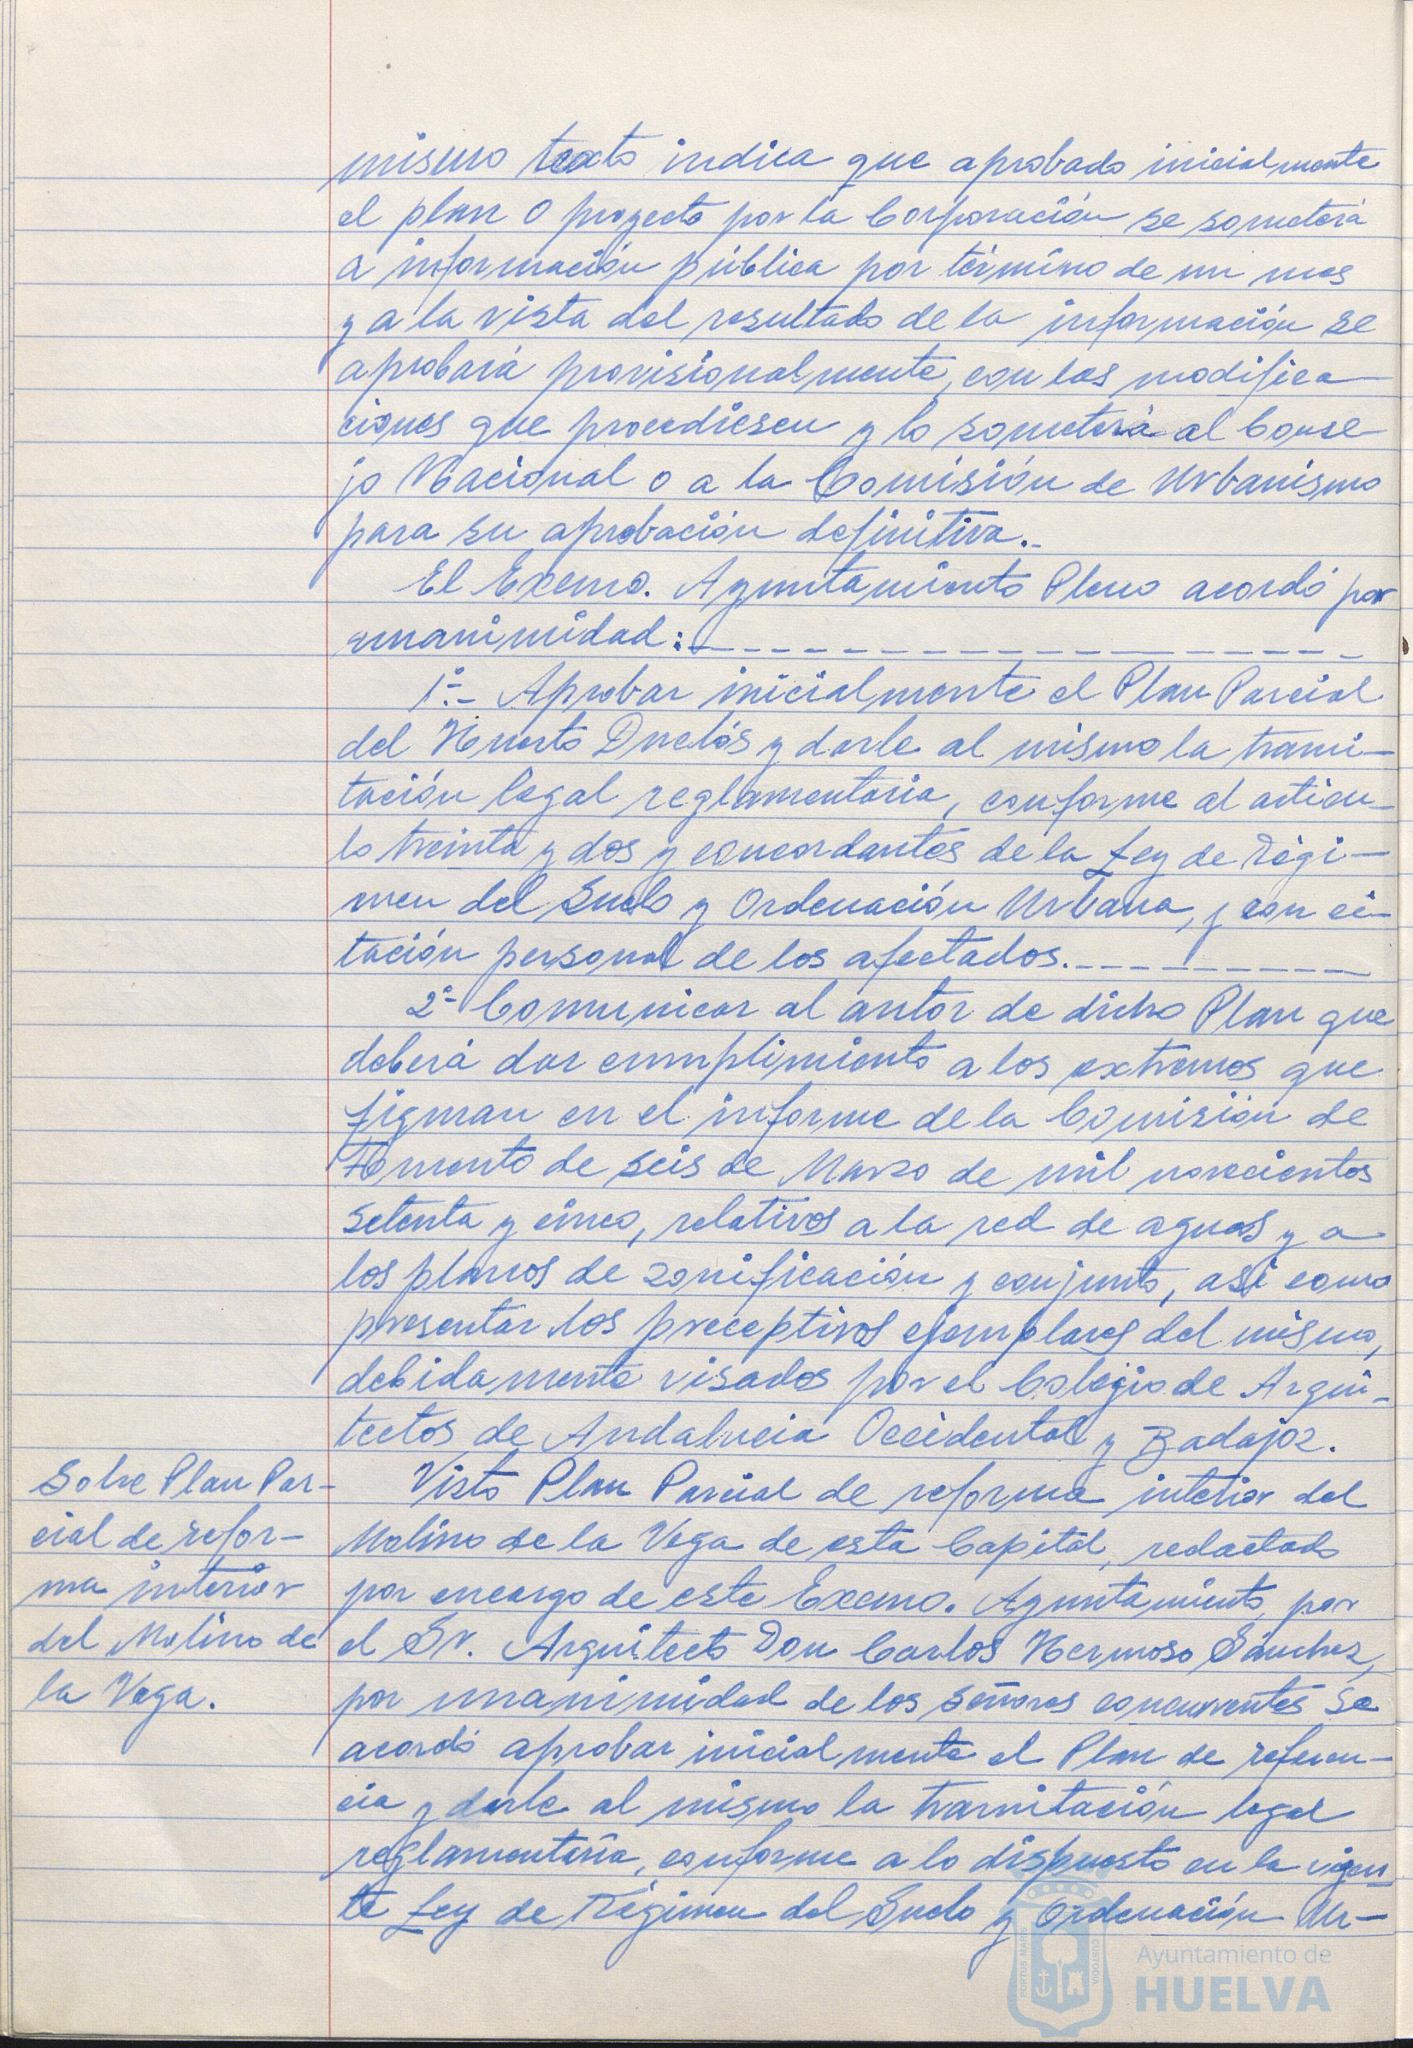 mismo texto indica que aprobado inicialmente
el plan o proyecto por la Corporación se someterá
a información pública por término de un mes
y a la vista del resultado de la información se
aprobará provisionalmente, con las modifica-
ciones que procediesen y lo someterá al Conse-
jo Nacional o a la Comisión de Urbanismo
para su aprobación definitiva.-
El Excmo. Ayuntamiento Pleno acordó por
unanimidad:
1º.- Aprobar inicialmente el Plan Parcial
del Huerto Duclós y darle al mismo la trami-
tación legal reglamentaria, conforme al articu-
lo treinta y dos y concordantes de la Ley de Régi-
men del Suelo y Ordenación Urbana, y con ci-
tación personal de los afectados.
2º- Comunicar al autor de dicho Plan que
deberá dar cumplimiento a los extremos que
figuran en el informe de la Comisión de
Fomento de seis de Marzo de mil novecientos
setenta y cinco, relativos a la red de aguas y a
los planos de zonificación y conjunto, asi como
presentar los preceptivos ejemplares del mismo,
debidamente visados por el Colegio de Arqui-
tectos de Andalucia Occidental y Badajoz.
Sobre Plan Par-
cial de refor-
ma interior
del Molino de
la Vega.
Visto Plan Parcial de reforma interior del
Molino de la Vega de esta Capital, redactado
por encargo de este Excmo. Ayuntamiento, por
el Sr. Arquitecto Don Carlos Hermoso Sánchez,
por unanimidad de los señores concurrentes se
acordó aprobar inicialmente el Plan de referen-
cia y darle al mismo la tramitación legal
reglamentaria, conforme a lo dispuesto en la vigen-
te Ley de Régimen del Suelo y Ordenación Ur-
PORTUS MARIS
CUSTODIA
Ayuntamiento de
HUELVA